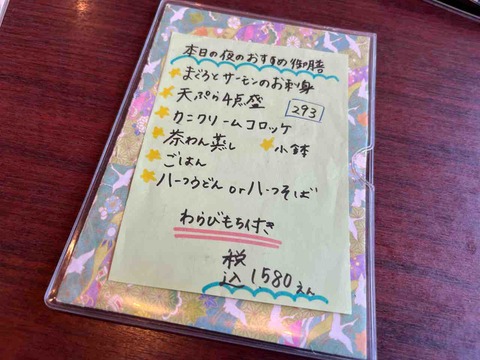 本日の夜のおすすめ御膳
まぐろとサーモンのお刺身
天ぷら4点盛
293
カニクリームコロッケ
茶わん蒸し 小鉢
ごはん
ハーフうどん orハーフそば
わらびもち付き
税込1580えん